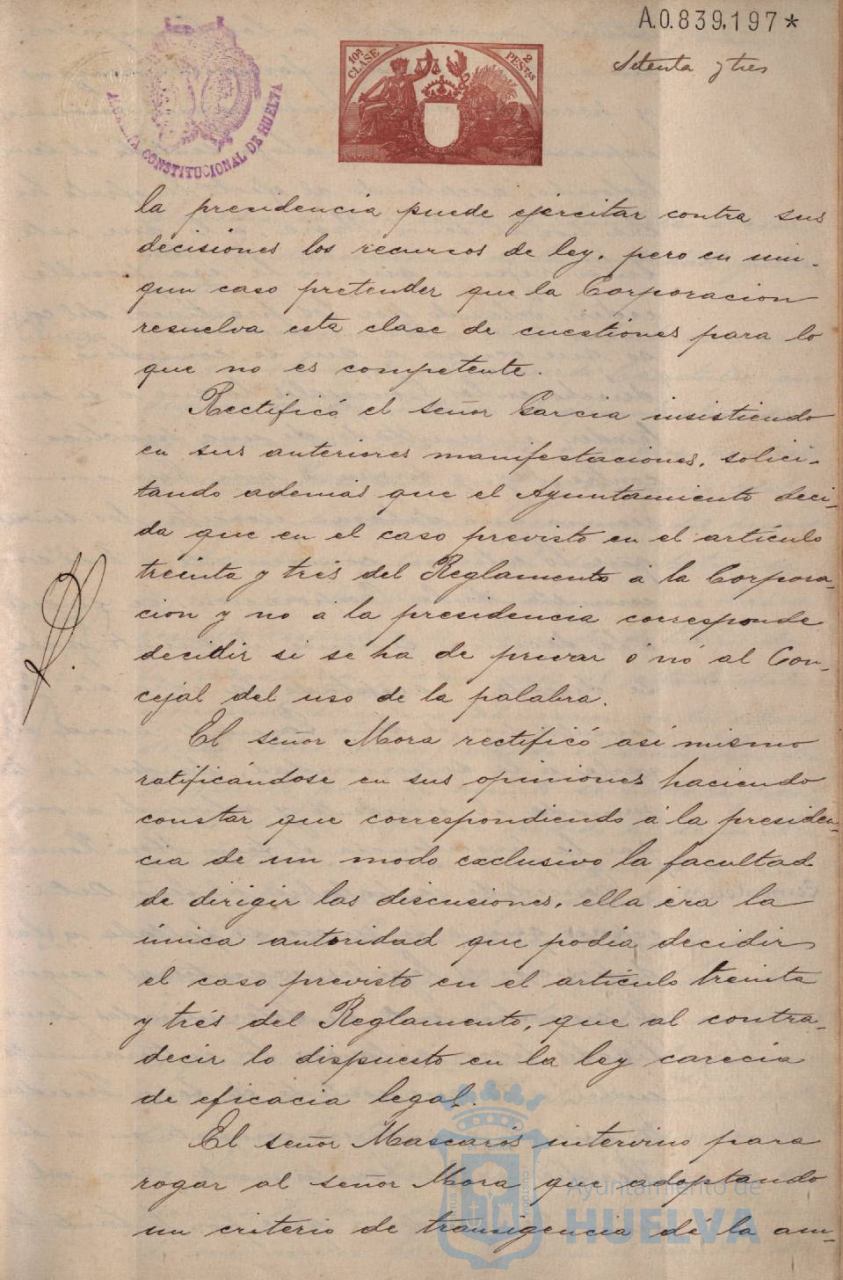 A.0.839,197*
Setenta y tres
ALCALDIA CONSTITUCIONAL DE HUELVA
10ª CLASE
2 PESETAS
la presidencia puede ejercitar contra sus
decisiones los recursos de ley, pero en nin-
gun caso pretender que la Corporacion
resuelva esta clase de cuestiones para lo
que no es competente.
Rectificó el señor Garcia insistiendo
en sus anteriores manifestaciones, solici-
tando además que el Ayuntamiento deci-
da que en el caso previsto en el artículo
treinta y trés del Reglamento á la Corpora-
cion y no á la presidencia corresponde
decidir si se ha de privar ó nó al Con-
cejal del uso de la palabra.
El señor Mora rectificó asi mismo
ratificándose en sus opiniones haciendo
constar que correspondiendo á la presiden-
cia de un modo exclusivo la facultad
de dirigir las discusiones, ella era la
única autoridad que podia decidir
el caso previsto en el artículo treinta
y trés del Reglamento, que al contra-
decir lo dispuesto en la ley carecia
de eficacia legal.
El señor Mascarós intervino para
rogar al señor Mora que adoptando
un criterio de transigencia dé la am-
Ayuntamiento de
HUELVA